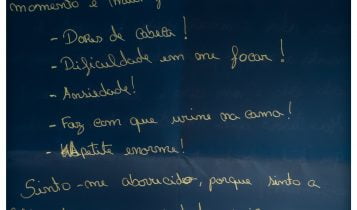 momento é mais
- Dores de cabeça!
- Dificuldade em me focar!
- Ansiedade!
- Faz com que urine na cama!
- Apetite enorme!
Sinto-me aborrecido, porque sinto a